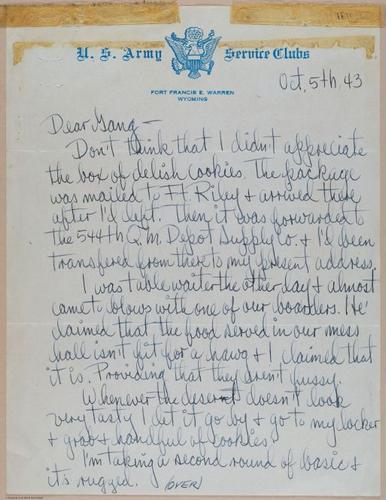 U. S. Army Service Clubs
FORT FRANCIS E. WARREN
WYOMING
Oct, 5th 43
Dear Gang —
Don't think that I didn't appreciate
the box of delish cookies. The package
was mailed to Ft. Riley & arrived there
after I'd left. Then it was forwarded to
the 544th Q.M. Depot Supply Co. & I'd been
transfered from there to my present address.
I was table waiter the other day & almost
came to blows with one of our boarders. 'He'
claimed that the food served in our mess
hall isn't fit for a hawg & I claimed that
it is. Providing that they aren't fussy.
Whenever the desert doesn't look
very tasty I let it go by & go to my locker
& grab a handful of cookies.
I'm taking a second round of basic &
it's rugged. (OVER)